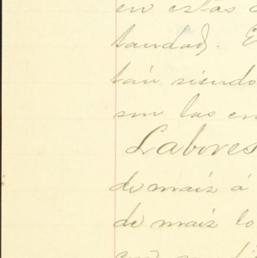 en estas
tandad). E
tán siendo
son las en
Labores
de maiz á
de maiz lo